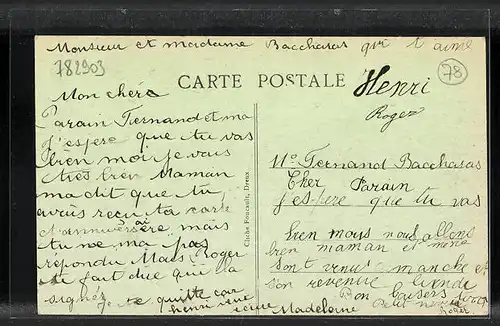 Monsieur et madame Bacchasas qui t aime
782903
78
CARTE POSTALE
Henri
Roger
Mon chère
Parain Fernand et ma
j'espere que tu vas
bien moi je vais
tres bien Maman
ma dit que tu
avais reçu ta carte
d'anniversère mais
tu ne ma pas
répondu Mais Roger
fait dire que il a
je te quitte car
henri
Madeleine
Cliché Foucault, Dreux
Mr Fernand Bacchasas
Cher Parain
j'espère que tu vas
bien nous allons
bien maman et
sont venus manche et
son revenue lundi
bon baisers
Roger